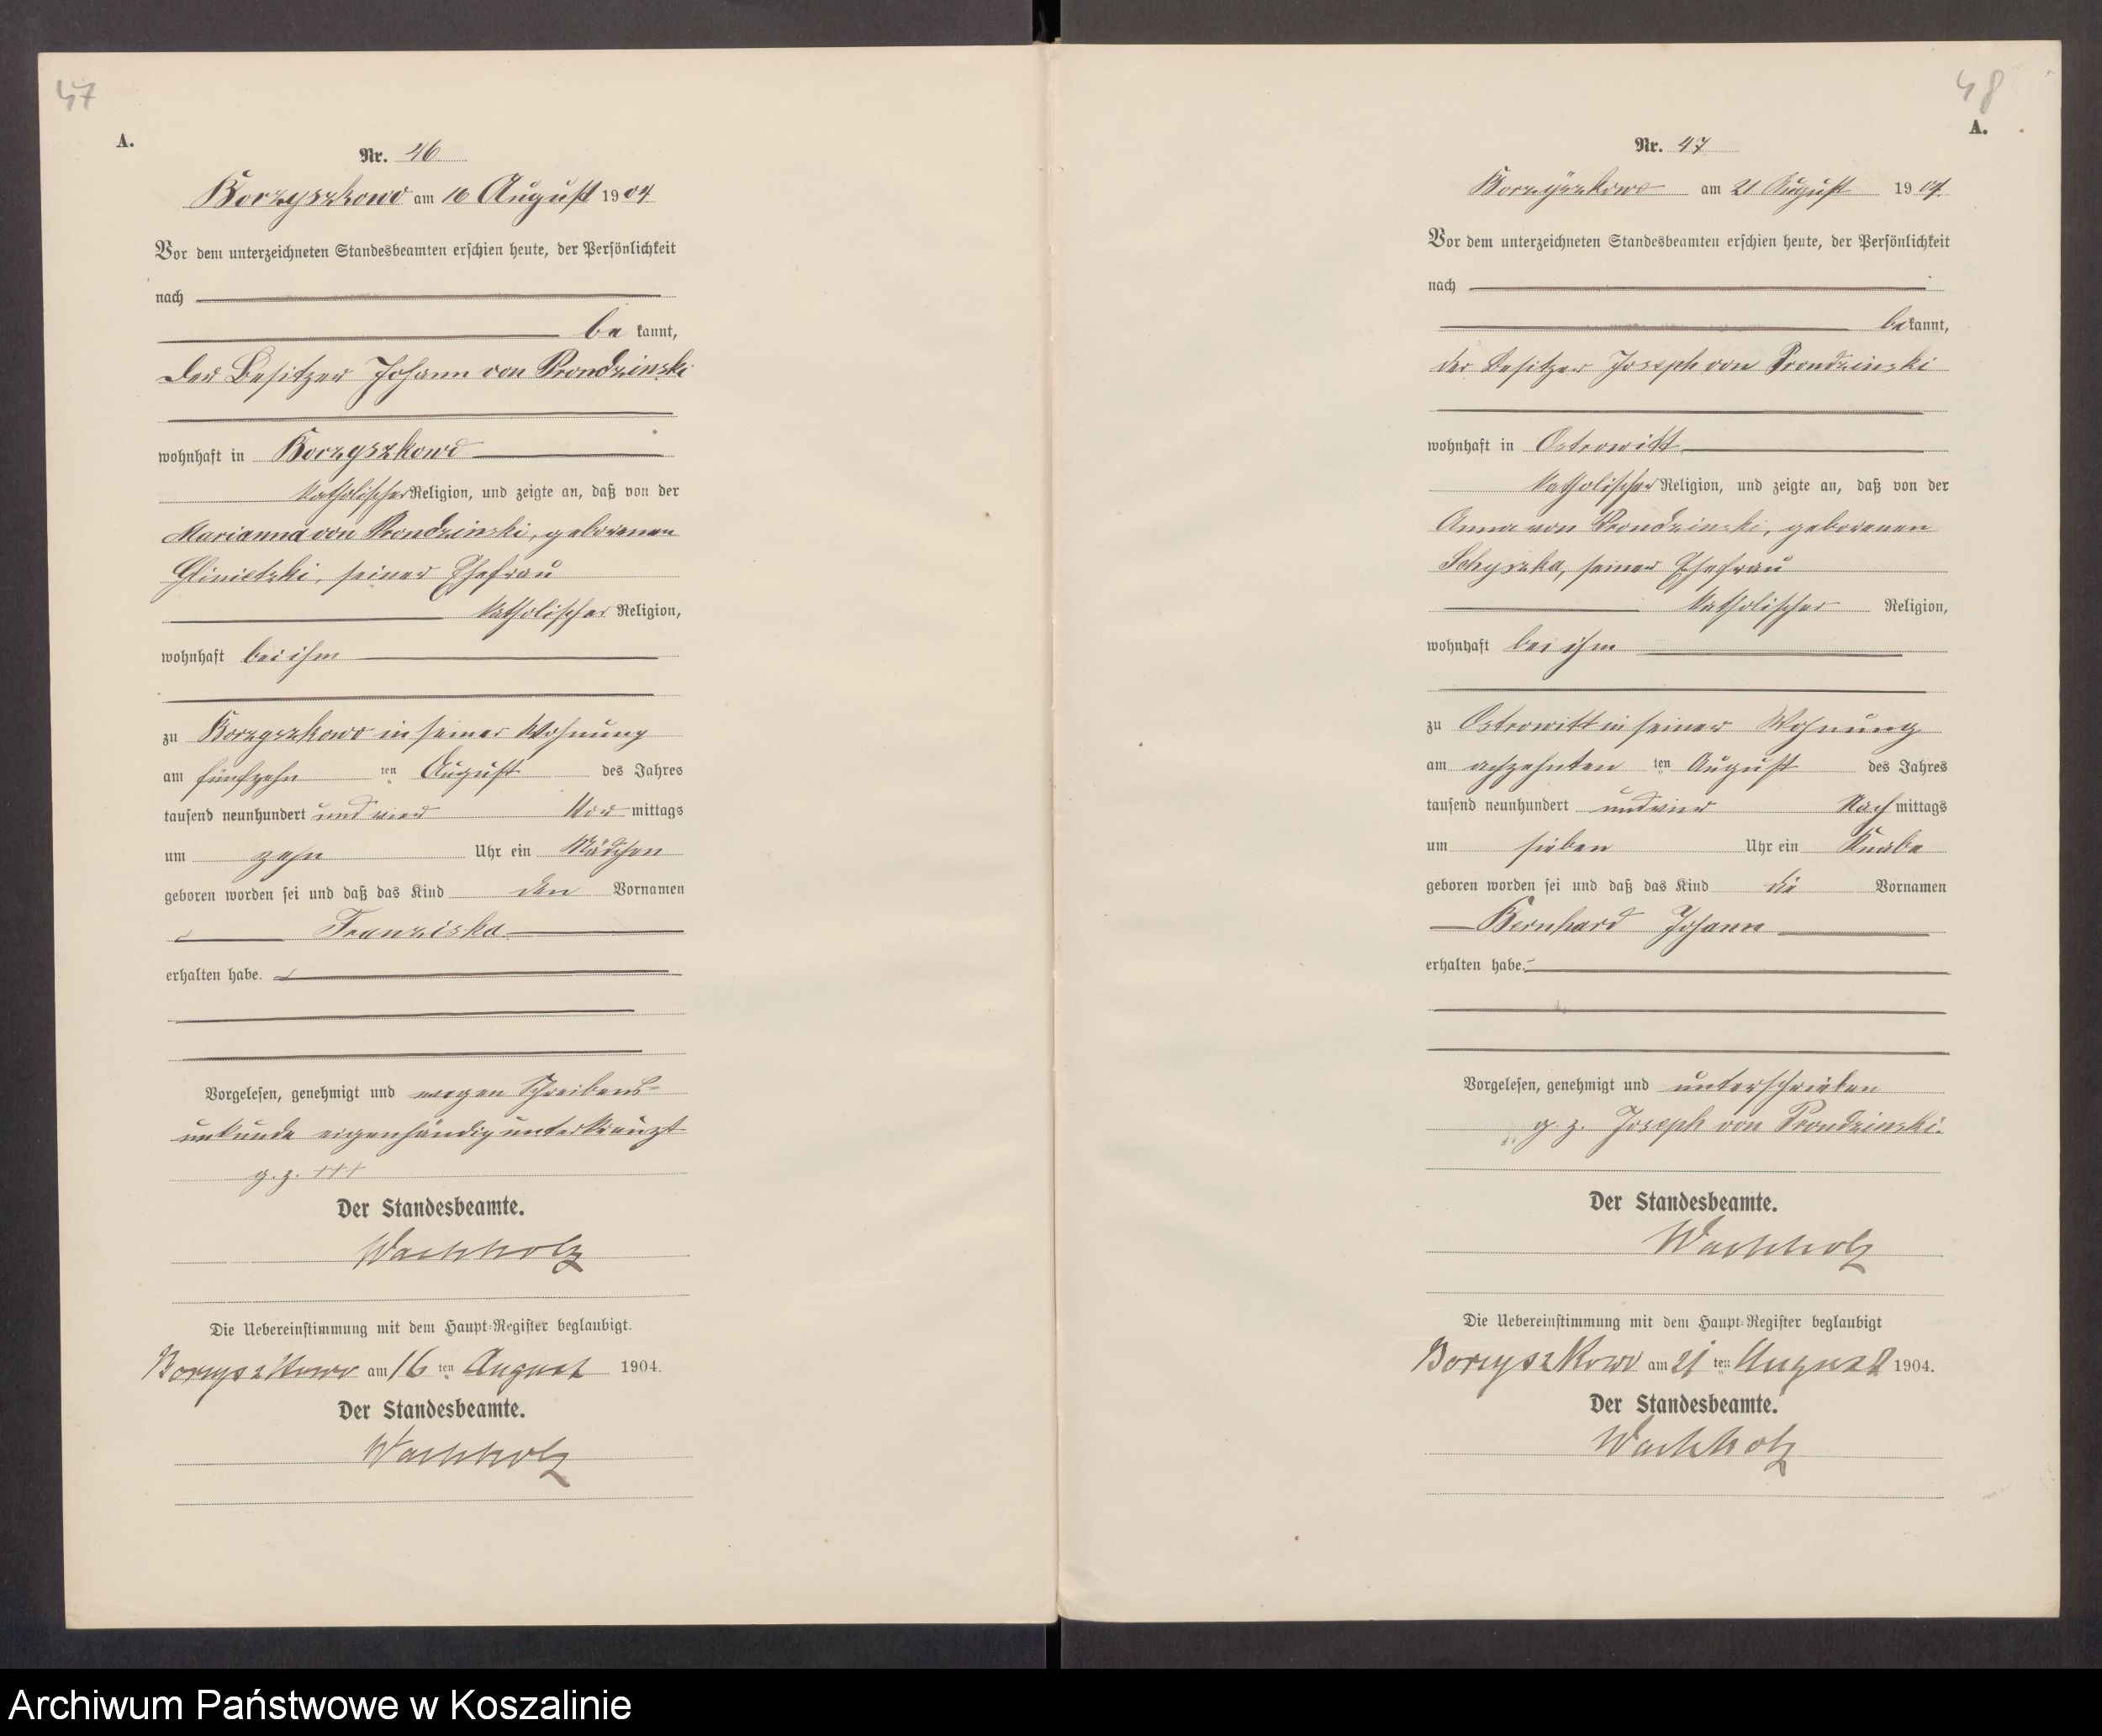 47
A.
Nr. 46
Borzyszkowo am 16 August 1904
Vor dem unterzeichneten Standesbeamten erschien heute, der Persönlichkeit
nach
be kannt,
Der Besitzer Johann von Prondzinski
wohnhaft in Borzyszkowo
katholischer Religion, und zeigte an, daß von der
Marianna von Prondzinski, geborenen
Glinietzki, seiner Ehefrau
katholischer Religion,
wohnhaft bei ihm
zu Borzyszkowo in seiner Wohnung
am fünfzehn ten August des Jahres
tausend neunhundert und vier Vor mittags
um zehn Uhr ein Mädchen
geboren worden sei und daß das Kind den Vornamen
Franziska
erhalten habe.
Vorgelesen, genehmigt und wegen Schreibens-
unkunde eigenhändig unterkreuzt
g. z. +++
Der Standesbeamte.
Wachholz
Die Uebereinstimmung mit dem Haupt-Register beglaubigt.
Borzyszkowo am 16 ten August 1904.
Der Standesbeamte.
Wachholz
48
A.
Nr. 47
Borzyszkowo am 21 August 1904.
Vor dem unterzeichneten Standesbeamten erschien heute, der Persönlichkeit
nach
be kannt,
der Besitzer Joseph von Prondzinski
wohnhaft in Ostrowitt
katholischer Religion, und zeigte an, daß von der
Anna von Prondzinski, geborenen
Schyszka, seiner Ehefrau
katholischer Religion,
wohnhaft bei ihm
zu Ostrowitt in seiner Wohnung
am achzehnten ten August des Jahres
tausend neunhundert und vier Nach mittags
um sieben Uhr ein Knabe
geboren worden sei und daß das Kind die Vornamen
Bernhard Johann
erhalten habe.
Vorgelesen, genehmigt und unterschrieben
g. z. Joseph von Prondzinski.
Der Standesbeamte.
Wachholz
Die Uebereinstimmung mit dem Haupt-Register beglaubigt
Borzyszkowo am 21 ten August 1904.
Der Standesbeamte.
Wachholz
Archiwum Państwowe w Koszalinie